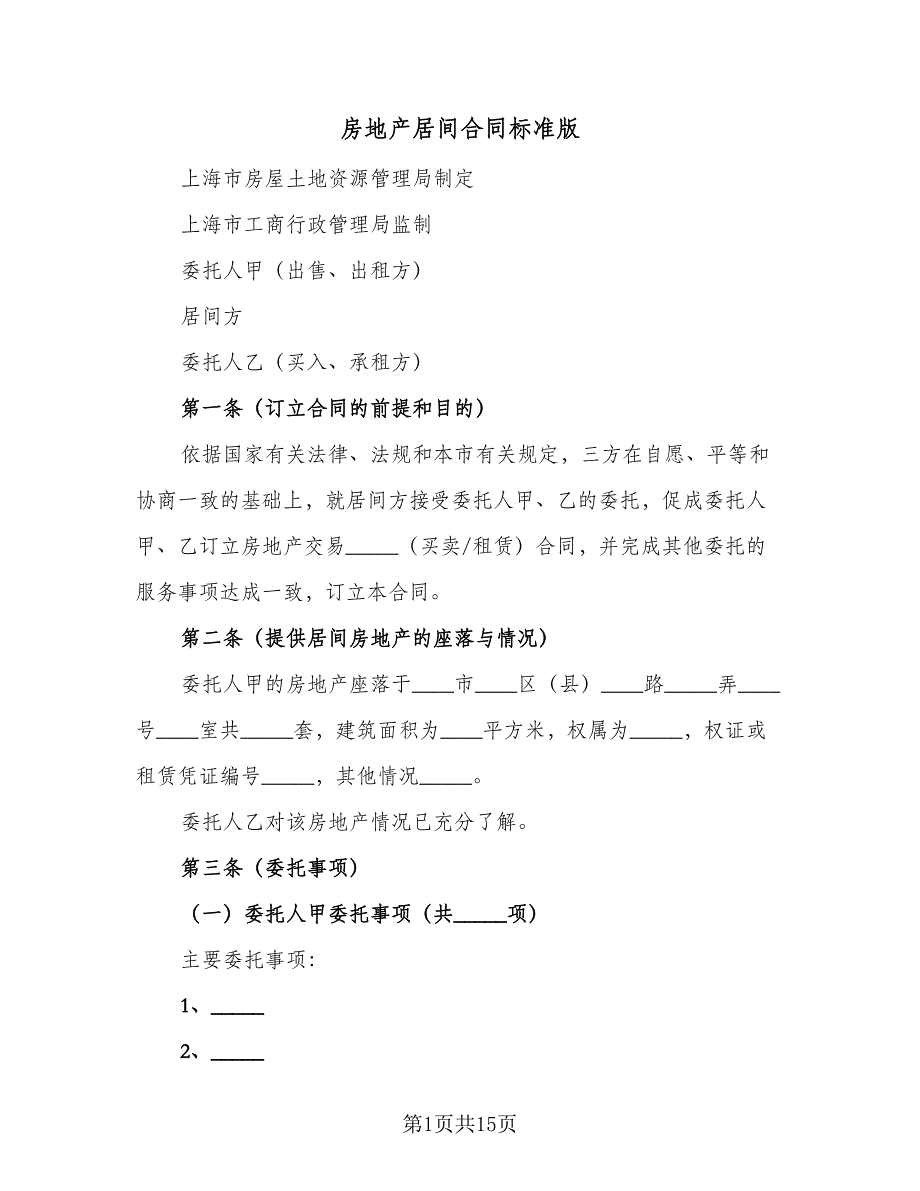 房地产居间合同标准版
上海市房屋土地资源管理局制定
上海市工商行政管理局监制
委托人甲（出售、出租方）
居间方
委托人乙（买入、承租方）
第一条（订立合同的前提和目的）
依据国家有关法律、法规和本市有关规定，三方在自愿、平等和
协商一致的基础上，就居间方接受委托人甲、乙的委托，促成委托人
甲、乙订立房地产交易_____（买卖/租赁）合同，并完成其他委托的
服务事项达成一致，订立本合同。
第二条（提供居间房地产的座落与情况）
委托人甲的房地产座落于____市____区（县）____路_____弄____
号____室共_____套，建筑面积为____平方米，权属为_____，权证或
租赁凭证编号_____，其他情况_____。
委托人乙对该房地产情况已充分了解。
第三条（委托事项）
（一）委托人甲委托事项（共_____项）
主要委托事项：
1、_____
2、_____
第1页共15页